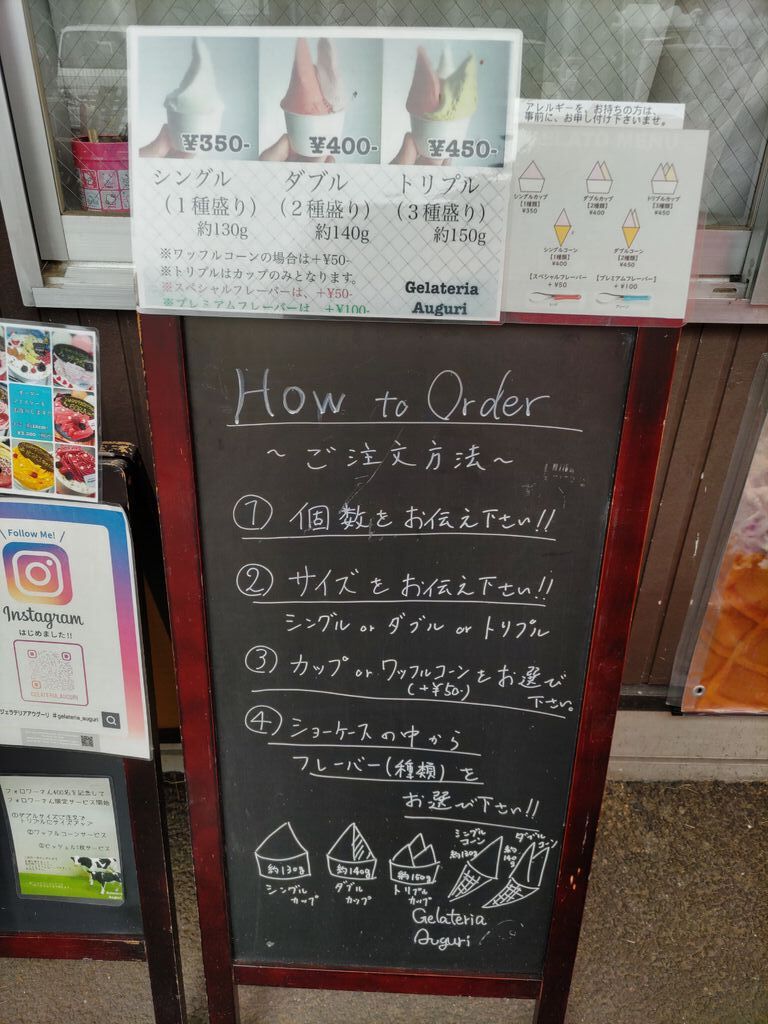 ¥350-
¥400-
¥450-
シングル
(1種盛り)
約130g
ダブル
(2種盛り)
約140g
トリプル
(3種盛り)
約150g
※ワッフルコーンの場合は+¥50-
※トリプルはカップのみとなります。
※スペシャルフレーバーは、+¥50-
※プレミアムフレーバーは、+¥100-
Gelateria
Auguri
アレルギーを、お持ちの方は、
事前に、お申し付け下さいませ。
シングルカップ
【1種類】
¥350
ダブルカップ
【2種類】
¥400
トリプルカップ
【3種類】
¥450
シングルコーン
【1種類】
¥400
ダブルコーン
【2種類】
¥450
【スペシャルフレーバー】
+¥50
【プレミアムフレーバー】
+¥100
How to Order
~ご注文方法~
① 個数をお伝え下さい!!
② サイズをお伝え下さい!!
シングル or ダブル or トリプル
③ カップ or ワッフルコーンをお選び
(+¥50-)
下さい。
④ ショーケースの中から
フレーバー(種類)を
お選び下さい!!
約130g
シングル
カップ
約140g
ダブル
カップ
約150g
トリプル
カップ
シングル
コーン
約130g
ダブル
コーン
約140g
Gelateria
Auguri
\ Follow Me! /
Instagram
はじめました!!
GELATERIA.AUGURI
ジェラテリアアウグーリ #gelateria_auguri
フォロワーさん400名を記念して
フォロワーさん限定サービス開始
①ダブルサイズご注文で
トリプルにサイズアップ
②ワッフルコーンサービス
Auguri